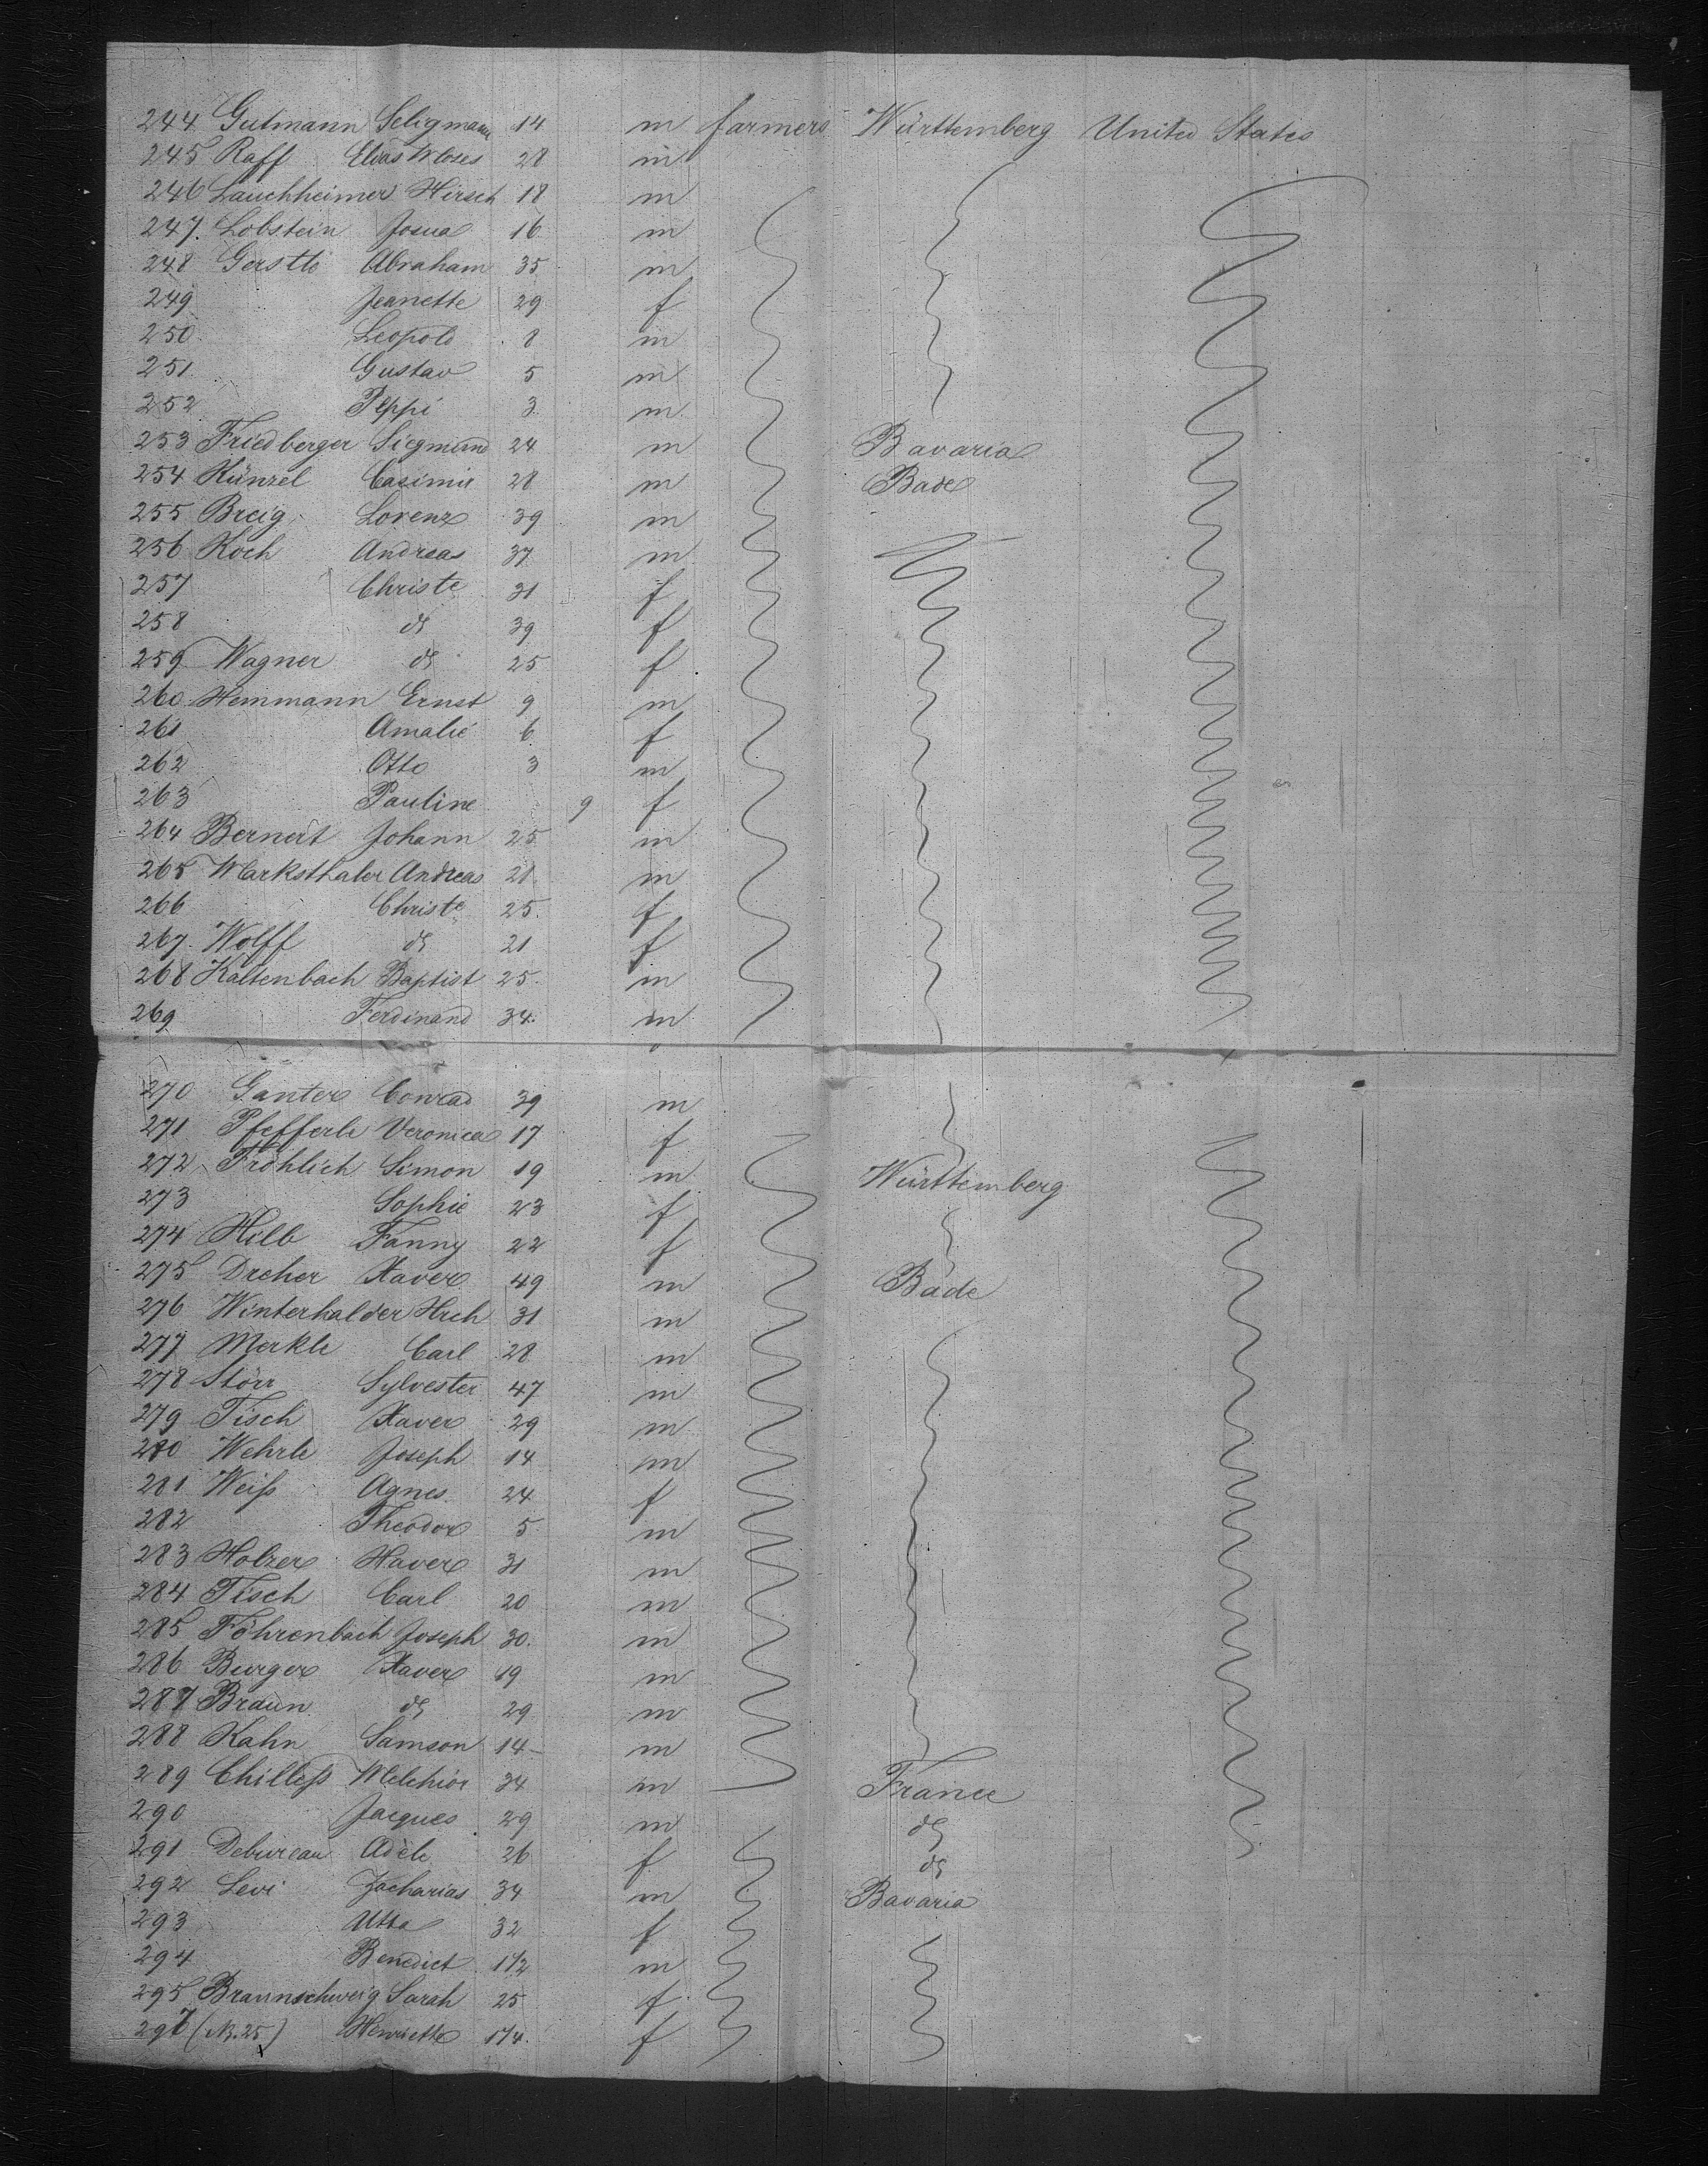 244 Gutmann Seligmann 14 m farmers Württemberg United States
245 Raff Elias Moses 28 m
246 Lauchheimer Hirsch 18 m
247. Lobstein Josua 16 m
248 Gerstle Abraham 35 m
249 Jeanette 29 f
250 Leopold 8 m
251 Gustav 5 m
252 Peppi 3 m
253 Friedberger Siegmund 24 m Bavaria
254 Künzel Casimir 28 m Bade
255 Breig Lorenz 39 m
256 Koch Andreas 37 m
257 Christe 31 f
258 do 39 f
259 Wagner do 25 f
260 Hemmann Ernst 9 m
261 Amalie 6 f
262 Otto 3 m
263 Pauline 9 f
264 Bernert Johann 25 m
265 Marksthaler Andreas 21 m
266 Christe 25 f
267. Wolff do 21 f
268 Kaltenbach Baptist 25 m
269 Ferdinand 34 m
270 Ganter Conrad 39 m
271 Pfefferle Veronica 17 f
272 Fröhlich Simon 19 m Württemberg
273 Sophie 23 f
274 Hilb Fanny 22 f
275 Dreher Xaver 49 m Bade
276 Winterhalder Hrch 31 m
277 Merkle Carl 28 m
278 Störr Sylvester 47 m
279 Tisch Xaver 29 m
280 Wehrle Joseph 14 m
281 Weiß Agnes 24 f
282 Theodor 5 m
283 Holzer Xaver 31 m
284 Tisch Carl 20 m
285 Föhrenbach Joseph 30 m
286 Burger Xaver 19 m
287 Braun do 29 m
288 Kahn Samson 14 m
289 Chilleß Melchior 34 m France
290 Jacques 29 m do
291 Debureau Adèle 26 f do
292 Levi Zacharias 34 m Bavaria
293 Utta 32 f
294 Benedict 1 1/2 m
295 Braunschweig Sarah 25 f
297 (No. 25) Henriette 1/4 f